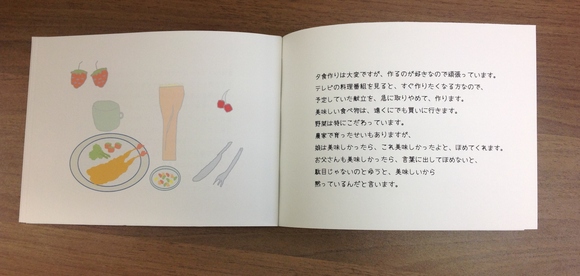 夕食作りは大変ですが、作るのが好きなので頑張っています。
テレビの料理番組を見ると、すぐ作りたくなる方なので、
予定していた献立を、急に取りやめて、作ります。
美味しい食べ物は、遠くにでも買いに行きます。
野菜は特にこだわっています。
農家で育ったせいもありますが、
娘は美味しかったら、これ美味しかったよと、ほめてくれます。
お父さんも美味しかったら、言葉に出してほめないと、
駄目じゃないのとゆうと、美味しいから
黙っているんだと言います。